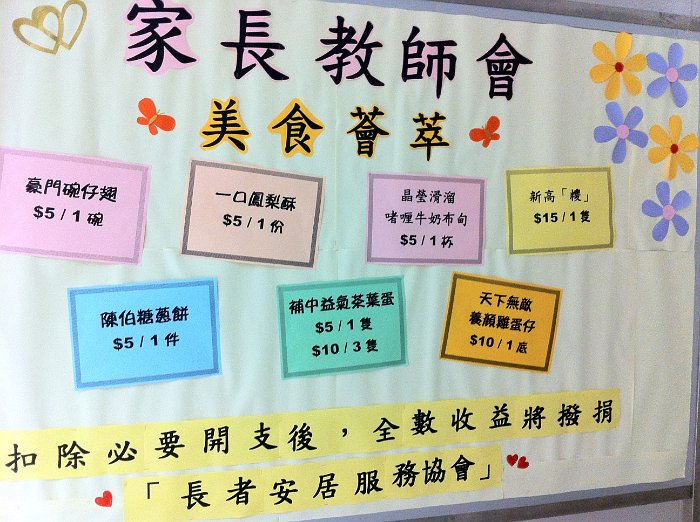 家長教師會
美食薈萃
豪門碗仔翅
$5 / 1 碗
一口鳳梨酥
$5 / 1 份
晶瑩滑溜
啫喱牛奶布甸
$5 / 1 杯
新高「糭」
$15 / 1 隻
陳伯糖蔥餅
$5 / 1 件
補中益氣茶葉蛋
$5 / 1 隻
$10 / 3 隻
天下無敵
養顏雞蛋仔
$10 / 1 底
扣除必要開支後，全數收益將撥捐
「長者安居服務協會」